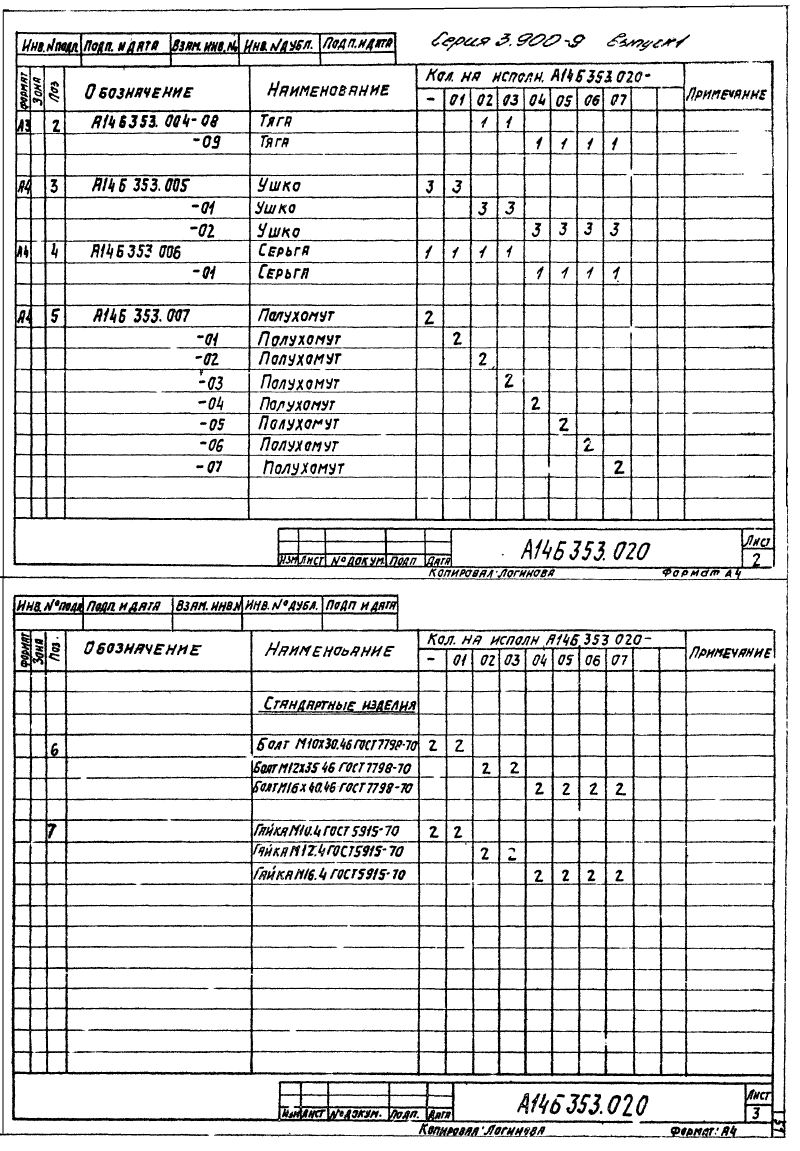 Серия 3.900-9 Выпуск 1
Инв. № подл. Подп. и дата Взам. инв. № Инв. № дубл. Подп. и дата
Формат Зона Поз Обозначение Наименование Кол. на исполн. А14Б353.020- Примечание
- 01 02 03 04 05 06 07
А3 2 А14Б353.004-08 Тяга 1 1
-09 Тяга 1 1 1 1
А4 3 А14Б 353.005 Ушко 3 3
-01 Ушко 3 3
-02 Ушко 3 3 3 3
А4 4 А14Б353 006 Серьга 1 1 1 1
-01 Серьга 1 1 1 1
А4 5 А14Б 353.007 Полухомут 2
-01 Полухомут 2
-02 Полухомут 2
-03 Полухомут 2
-04 Полухомут 2
-05 Полухомут 2
-06 Полухомут 2
-07 Полухомут 2
Изм Лист № докум. Подп Дата А14Б353.020 Лист 2
Копировал: Логинова Формат А4
Инв. № подл Подп. и дата Взам. инв. № Инв. № дубл. Подп и дата
Формат Зона Поз. Обозначение Наименование Кол. на исполн А14Б 353 020- Примечание
- 01 02 03 04 05 06 07
Стандартные изделия
6 Болт М10х30.46 ГОСТ 7798-70 2 2
Болт М12х35 46 ГОСТ 7798-70 2 2
Болт М16х40.46 ГОСТ 7798-70 2 2 2 2
7 Гайка М10.4 ГОСТ 5915-70 2 2
Гайка М12.4 ГОСТ 5915-70 2 2
Гайка М16.4 ГОСТ 5915-70 2 2 2 2
Изм Лист № докум. Подп. Дата А14Б 353.020 Лист 3
Копировал: Логинова Формат: А4